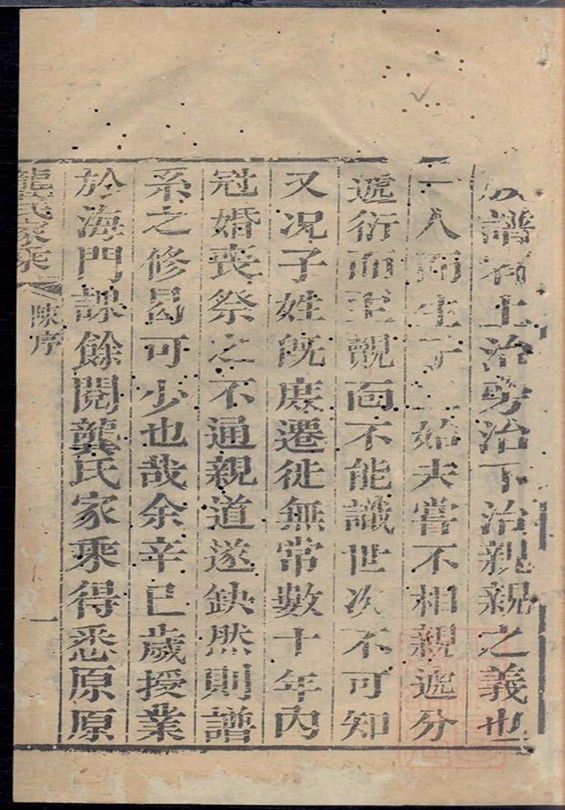 族譜有上治旁治下治親親之義也
一人而生子之始未嘗不相親遞分
遞衍而至覿面不能識世次不可知
又况子姓旣庶遷徙無常數十年內
冠婚喪祭之不通親道遂缺然則譜
系之修曷可少也哉余辛巳歲授業
於海門課餘閱龔氏家乘得悉原原
龔氏家乘 陳序 一